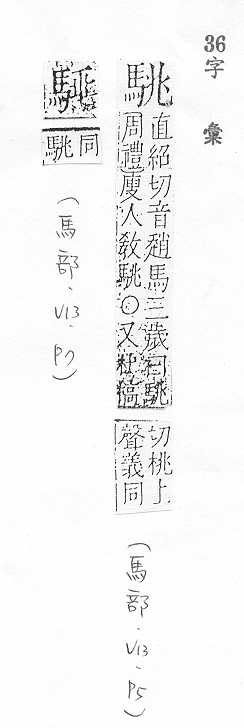 36
字 彙
駣
直紹切音趙馬三歲曰駣
周禮廋人敎駣〇又杜槁
切桃上
聲義同
(馬部.V13.P5)
同
駣
(馬部.V13.P7)